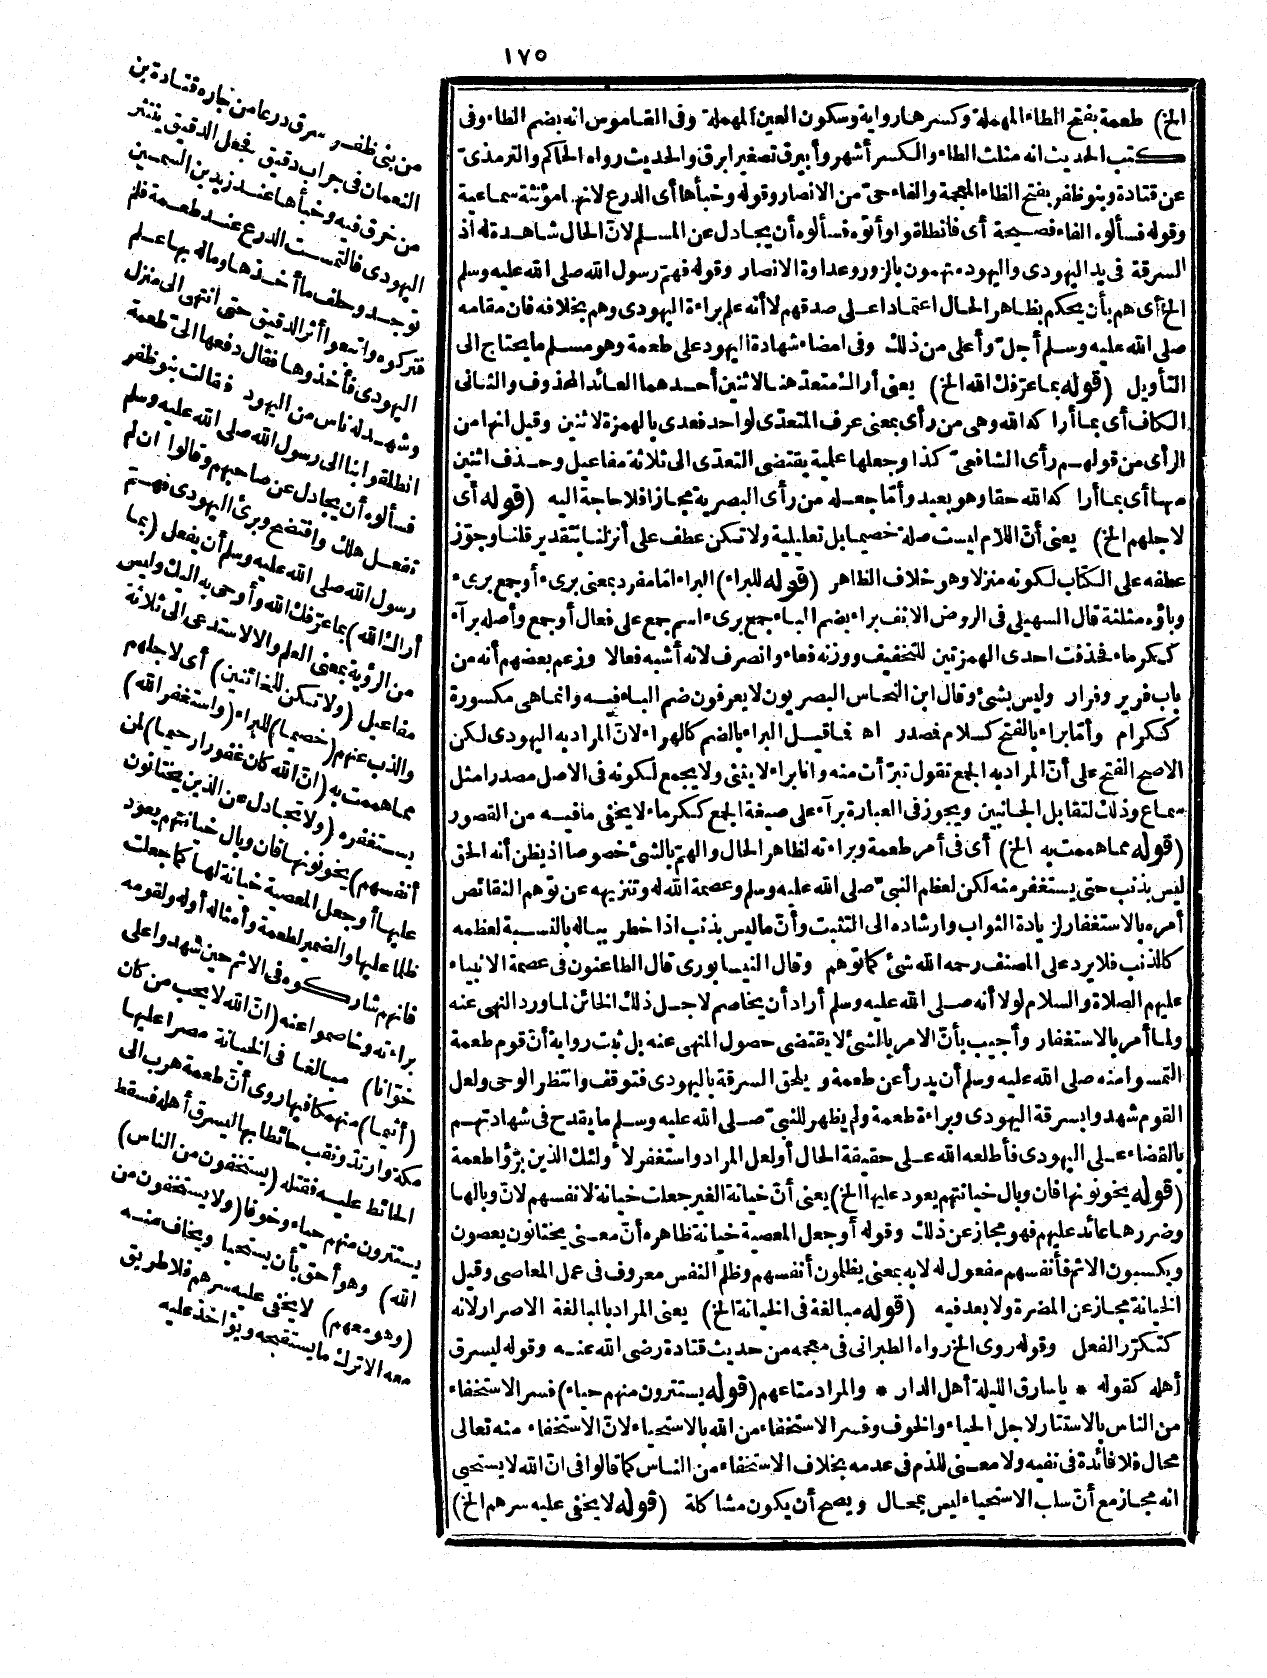 ١٧٥
الخ) طعمة بفتح الطاء المهملة وكسرها رواية وسكون العين المهملة وفى القاموس انه بضم الطاء وفى
كتب الحديث انه مثلث الطاء والكسر أشهر وأبيرق تصغير ابرق والحديث رواه الحاكم والترمذىّ
عن قتادة وبنو ظفر بفتح الظاء المعجمة والفاء حىّ من الانصار وقوله وخبأها أى الدرع لانها مؤنثة سماعية
وقوله فسألوه الفاء فصيحة أى فانطلقوا وأتوه فسألوه أن يجادل عن المسلم لانّ الحال شاهدة له اذ
السرقة فى يد اليهودى واليهود متهمون بالزور وعداوة الانصار وقوله فهمّ رسول الله صلى الله عليه وسلم
الخ أى همّ بأن يحكم بظاهر الحال اعتمادا على صدقهم لا أنه علم براءة اليهودى وهمّ بخلافه فان مقامه
صلى الله عليه وسلم أجلّ وأعلى من ذلك وفى امضاء شهادة اليهود على طعمة وهو مسلم ما يحتاج الى
التأويل (قوله بما عرّفك الله الخ) يعنى أراك متعدّ هنا لاثنين أحدهما العائد المحذوف والثانى
الكاف أى بما أراكه الله وهى من رأى بمعنى عرف المتعدّى لواحد فعدى بالهمزة لاثنين وقيل انها من
الرأى من قولهم رأى الشافعىّ كذا وجعلها علمية يقتضى التعدّى الى ثلاثة مفاعيل وحذف اثنين
منها أى بما أراكه الله حقا وهو بعيد وأمّا جعله من رأى البصرية مجازا فلا حاجة اليه (قوله أى
لاجلهم الخ) يعنى أنّ اللام ليست صلة خصيما بل تعليلية ولا تكن عطف على أنزلنا بتقدير قلنا وجوّز
عطفه على الكتاب لكونه منزلا وهو خلاف الظاهر (قوله للبراء) البراء امّا مفرد بمعنى برىء أو جمع برىء
وباؤه مثلثة قال السهيلى فى الروض الانف براء بضم الباء جمع برىء اسم جمع على فعال أو جمع وأصله برآء
ككرماء فحذفت احدى الهمزتين للتخفيف ووزنه فعاء وانصرف لانه أشبه فعالا وزعم بعضهم أنه من
باب فرير وفرار وليس بشئ وقال ابن النحاس البصريون لا يعرفون ضم الباء فيه وانما هى مكسورة
ككرام وأمّا براء بالفتح كسلام فمصدر اه فما قيل البراء بالضم كالهراء لانّ المراد به اليهودى لكن
الاصح الفتح على أنّ المراد به الجمع تقول تبرّأت منه وانا براء لا يثنى ولا يجمع لكونه فى الاصل مصدرا مثل
سماع وذلك لتقابل الجانبين ويجوز فى العبارة برآء على صيغة الجمع ككرماء لا يخفى ما فيه من القصور
(قوله مما هممت به الخ) أى فى أمر طعمة وبراءته لظاهر الحال والهمّ بالشئ خصوصا اذ يظن أنه الحق
ليس بذنب حتى يستغفر منه لكن لعظم النبىّ صلى الله عليه وسلم وعصمة الله له وتنزيهه عن توهم النقائص
أمره بالاستغفار لزيادة الثواب وارشاده الى التثبت وأنّ ما ليس بذنب اذا خطر بباله بالنسبة لعظمه
كالذنب فلا يرد على المصنف رحمه الله شئ كما توهم وقال النيسابورى قال الطاعنون فى عصمة الانبياء
عليهم الصلاة والسلام لولا أنه صلى الله عليه وسلم أراد أن يخاصم لاجل ذلك الخائن لما ورد النهى عنه
ولما أمر بالاستغفار وأجيب بأنّ الامر بالشئ لا يقتضى حصول المنهى عنه بل ثبت رواية أنّ قوم طعمة
التمسوا منه صلى الله عليه وسلم أن يدرأ عن طعمة ويلحق السرقة باليهودى فتوقف وانتظر الوحى ولعل
القوم شهدوا بسرقة اليهودى وبراءة طعمة ولم يظهر للنبىّ صلى الله عليه وسلم ما يقدح فى شهادتهم
بالقضاء على اليهودى فأطلعه الله على حقيقة الحال أو لعل المراد واستغفر لأولئك الذين برّؤا طعمة
(قوله يخونونها فان وبال خيانتهم يعود عليها الخ) يعنى أنّ خيانة الغير جعلت خيانة لانفسهم لانّ وبالها
وضررها عائد عليهم فهو مجاز عن ذلك وقوله أو جعل المعصية خيانة ظاهره أنّ معنى يختانون يعصون
ويكسبون الاثم فأنفسهم مفعول له لابه بمعنى يظلمون أنفسهم وظلم النفس معروف فى عمل المعاصى وقيل
الخيانة مجاز عن المضرة ولا بعد فيه (قوله مبالغة فى الخيانة الخ) يعنى المراد بالمبالغة الاصرار لانه
كتكرّر الفعل وقوله روى الخ رواه الطبرانى فى معجمه من حديث قتادة رضى الله عنه وقوله ليسرق
أهله كقوله * يا سارق الليلة أهل الدار * والمراد متاعهم (قوله يستترون منهم حياء) فسر الاستخفاء
من الناس بالاستتار لاجل الحياء والخوف وفسر الاستخفاء من الله بالاستحياء لانّ الاستخفاء منه تعالى
محال فلا فائدة فى نفيه ولا معنى للذم فى عدمه بخلاف الاستخفاء من الناس كما قالوا فى انّ الله لا يستحيى
انه مجاز مع أنّ سلب الاستحياء ليس بمحال ويصح أن يكون مشاكلة (قوله لا يخفى عليه سرهم الخ)
من بنى ظفر سرق درعا من جاره قتادة بن
النعمان فى جراب دقيق فجعل الدقيق ينتثر
من خرق فيه وخبأها عند زيد بن السمين
اليهودى فالتمست الدرع عند طعمة فلم
توجد وحلف ما أخذها وماله بها علم
فتركوه واتبعوا أثر الدقيق حتى انتهى الى منزل
اليهودى فأخذوها فقال دفعها الىّ طعمة
وشهد له ناس من اليهود فقالت بنو ظفر
انطلقوا بنا الى رسول الله صلى الله عليه وسلم
فسألوه أن يجادل عن صاحبهم وقالوا ان لم
تفعل هلك وافتضح وبرئ اليهودى فهمّ
رسول الله صلى الله عليه وسلم أن يفعل (بما
أراك الله) بما عرّفك الله وأوحى به اليك وليس
من الرؤية بمعنى العلم والا لاستدعى الى ثلاثة
مفاعيل (ولا تكن للخائنين) أى لاجلهم
والذب عنهم (خصيما) للبراء (واستغفر الله)
مما هممت به (انّ الله كان غفورا رحيما) لمن
يستغفره (ولا تجادل عن الذين يختانون
أنفسهم) يخونونها فان وبال خيانتهم يعود
عليها أو جعل المعصية خيانة لها كما جعلت
ظلما عليها والضمير لطعمة وأمثاله أو له ولقومه
فانهم شاركوه فى الاثم حين شهدوا على
براءته وخاصموا عنه (انّ الله لا يحب من كان
خوّانا) مبالغا فى الخيانة مصرا عليها
(أثيما) منهمكا فيها روى أنّ طعمة هرب الى
مكة وارتدّ ونقب حائطا بها ليسرق أهله فسقط
الحائط عليه فقتله (يستخفون من الناس)
يستترون منهم حياء وخوفا (ولا يستخفون من
الله) وهو أحق بأن يستحيا ويخاف منه
(وهو معهم) لا يخفى عليه سرهم فلا طريق
معه الا ترك ما يستقبحه ويؤاخذ عليه